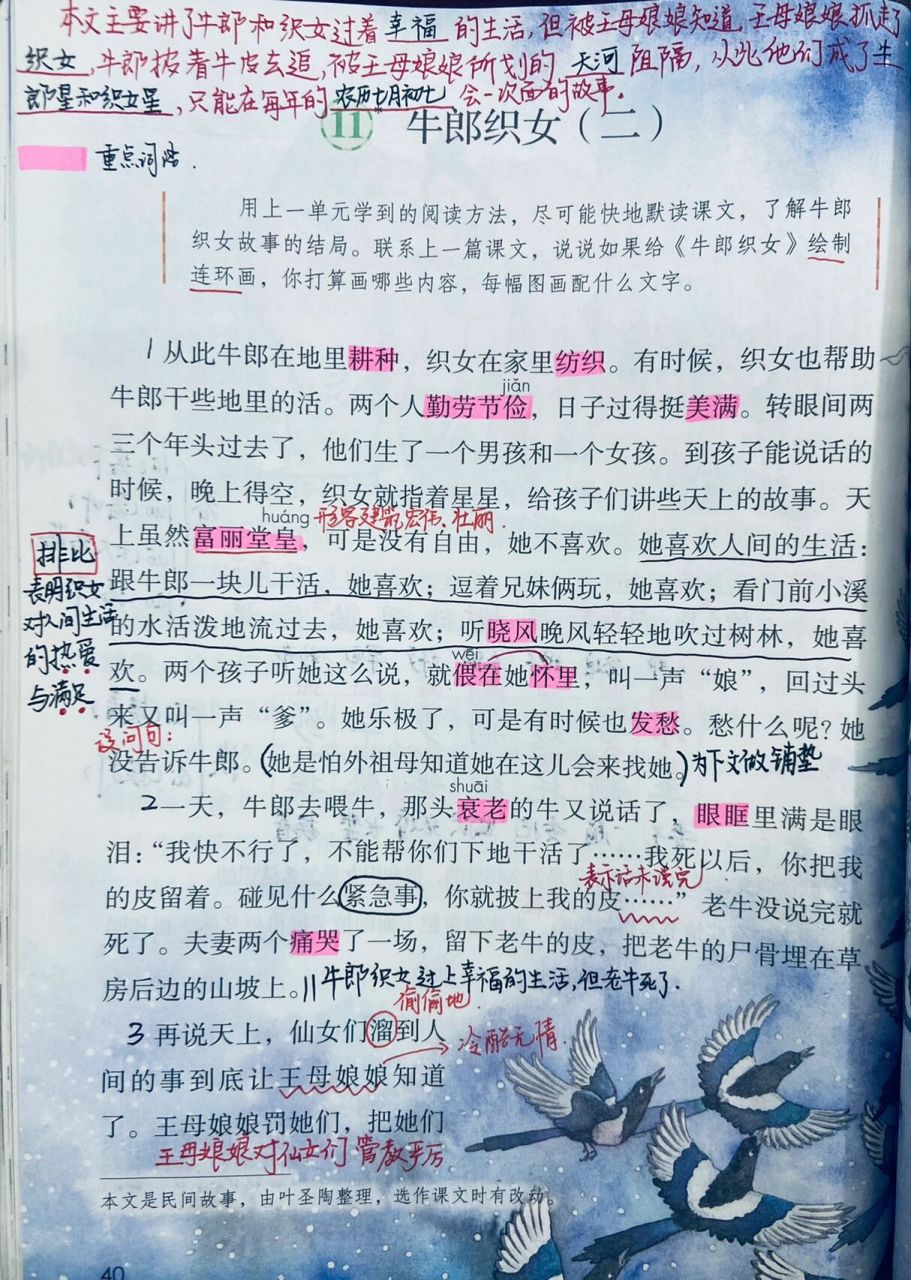 本文主要讲了牛郎和织女过着 幸福 的生活,但被王母娘娘知道,王母娘娘抓走了
织女,牛郎披着牛皮去追,被王母娘娘所划的 天河 阻隔,从此他们成了牛
郎星和织女星,只能在每年的 农历七月初七 会一次面的故事。
11 牛郎织女(二)
重点词语.
用上一单元学到的阅读方法,尽可能快地默读课文,了解牛郎
织女故事的结局。联系上一篇课文,说说如果给《牛郎织女》绘制
连环画,你打算画哪些内容,每幅图画配什么文字。
1 从此牛郎在地里耕种,织女在家里纺织。有时候,织女也帮助
jiǎn
牛郎干些地里的活。两个人勤劳节俭,日子过得挺美满。转眼间两
三个年头过去了,他们生了一个男孩和一个女孩。到孩子能说话的
时候,晚上得空,织女就指着星星,给孩子们讲些天上的故事。天
huáng 形容建筑宏伟、壮丽.
上虽然富丽堂皇,可是没有自由,她不喜欢。她喜欢人间的生活:
排比
跟牛郎一块儿干活,她喜欢;逗着兄妹俩玩,她喜欢;看门前小溪
表明织女
对人间生活
的水活泼地流过去,她喜欢;听晓风晚风轻轻地吹过树林,她喜
的热爱
wēi
欢。两个孩子听她这么说,就偎在她怀里,叫一声“娘”,回过头
与满足
来又叫一声“爹”。她乐极了,可是有时候也发愁。愁什么呢?她
设问句:
没告诉牛郎。(她是怕外祖母知道她在这儿会来找她。)为下文做铺垫
shuāi
2一天,牛郎去喂牛,那头衰老的牛又说话了,眼眶里满是眼
泪:“我快不行了,不能帮你们下地干活了……我死以后,你把我
表示话未说完
的皮留着。碰见什么紧急事,你就披上我的皮……”老牛没说完就
死了。夫妻两个痛哭了一场,留下老牛的皮,把老牛的尸骨埋在草
房后边的山坡上。||牛郎织女过上幸福的生活,但老牛死了.
偷偷地.
3 再说天上,仙女们溜到人
冷酷无情.
间的事到底让王母娘娘知道
了。王母娘娘罚她们,把她们
王母娘娘对仙女们管教严厉
本文是民间故事,由叶圣陶整理,选作课文时有改动。
40